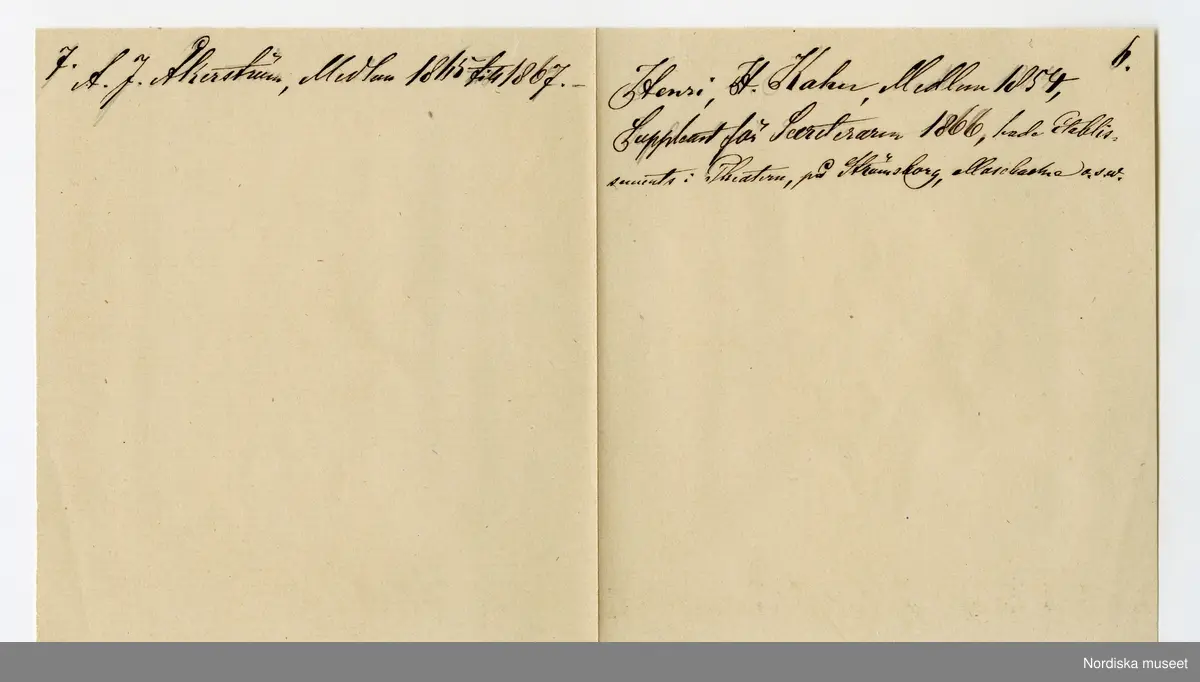 7. A. J. Åkerström, Medlem 1865 till 1867. –
6.
Henri, H. Hahn, Medlem 1854,
Suppleant för Secreteraren 1866, hade établis-
sements i Theatern, på Strömsborg, Mosebacke o.s.v.
Nordiska museet